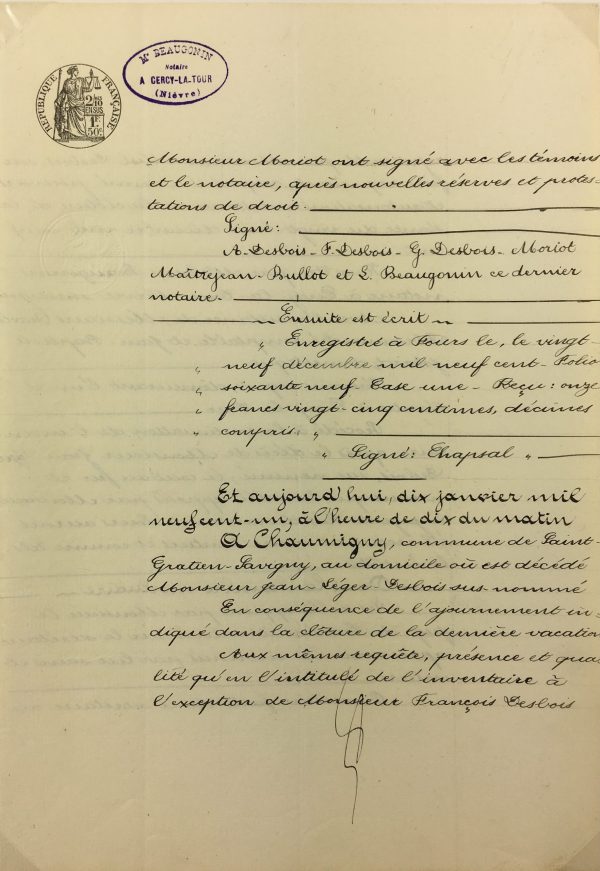 Mᵉ BEAUGONIN
Notaire
A CERCY-LA-TOUR
(Nièvre)
RÉPUBLIQUE FRANÇAISE
2/10
EN SUS
1F
50c
Monsieur Moriot ont signé avec les témoins
et le notaire, après nouvelles réserves et protes-
tations de droit.
Signé:
A. Desbois - F. Desbois - G. Desbois - Moriot
Maîtrejean - Bullot et L. Beaugonin ce dernier
notaire.
Ensuite est écrit
" Enregistré à Fours le, le vingt-
" neuf décembre mil neuf cent - Folio
" soixante neuf - Case une - Reçu: onze
" francs vingt-cinq centimes, décimes
" compris. "
" Signé: Chapsal "
Et aujourd'hui, dix janvier mil
neuf cent-un, à l'heure de dix du matin
A Chaumigny, commune de Saint-
Gratien-Savigny, au domicile où est décédé
Monsieur Jean-Léger-Desbois sus-nommé
En conséquence de l'ajournement in-
diqué dans la clôture de la dernière vacation
Aux mêmes requête, présence et qua-
lité qu'en l'intitulé de l'inventaire à
l'exception de Monsieur François Desbois